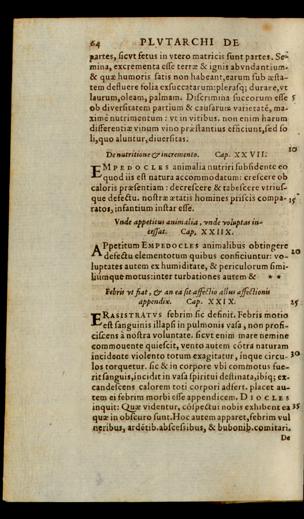 64 PLVTARCHI DE
partes, sicvt fetus in vtero matricis sunt partes. Se-
mina, excrementa esse terræ & ignis abvndantium-
& quæ humoris satis non habeant, earum sub æsta-
tem defluere folia exsuccatarum: plerasq; durare, vt
laurum, oleam, palmam. Discrimina succorum esse 5
ob diversitatem partium & causarum varietatē, ma-
xime nutrimentum: vt in vitibus. non enim harum
differentiæ vinum vino præstantius efficiunt, sed so
li, quo aluntur, diversitas.
De nutritione & incremento. Cap. XXVII. 10
EMPEDOCLES animalia nutriri subsidente eo
quod iis est natura accommodatum: crescere ob
caloris præsentiam: decrescere & tabescere vtrius-
que defectu. nostræ ætatis homines priscis compa-
ratos, infantium instar esse. 15
Vnde appetitus animalia, vnde voluptas in-
cessat. Cap. XXIIX.
APpetitum EMPEDOCLES animalibus obtingere
defectu elementorum quibus conficiuntur: vo- 20
luptates autem ex humiditate, & periculorum simi-
liumque motus: inter turbationes autem & * *
Febris vt fiat, & an ea sit affectio alius affectionis
appendix. Cap. XXIX. 25
ERASISTRATVS febrim sic definit. Febris motio
est sanguinis illapsi in pulmonis vasa, non profi-
ciscens à nostra voluntate. sicvt enim mare nemine
commovente quiescit, vento autem cōtra naturam
incidente violento totum exagitatur, inque circu- 30
los torquetur. sic & in corpore vbi commotus fue-
rit sanguis, incidit in vasa spiritui destinata, ibiq; ex-
candescens calorem toti corpori adfert. placet au-
tem ei febrim morbi esse appendicem. DIOCLES
inquit: Quæ videntur, cōspectui nobis exhibent ea 35
quæ in obscuro sunt. Hoc autem apparet, febrim vul
neribus, ardētib. abscessibus, & bubonib. comitari.
De